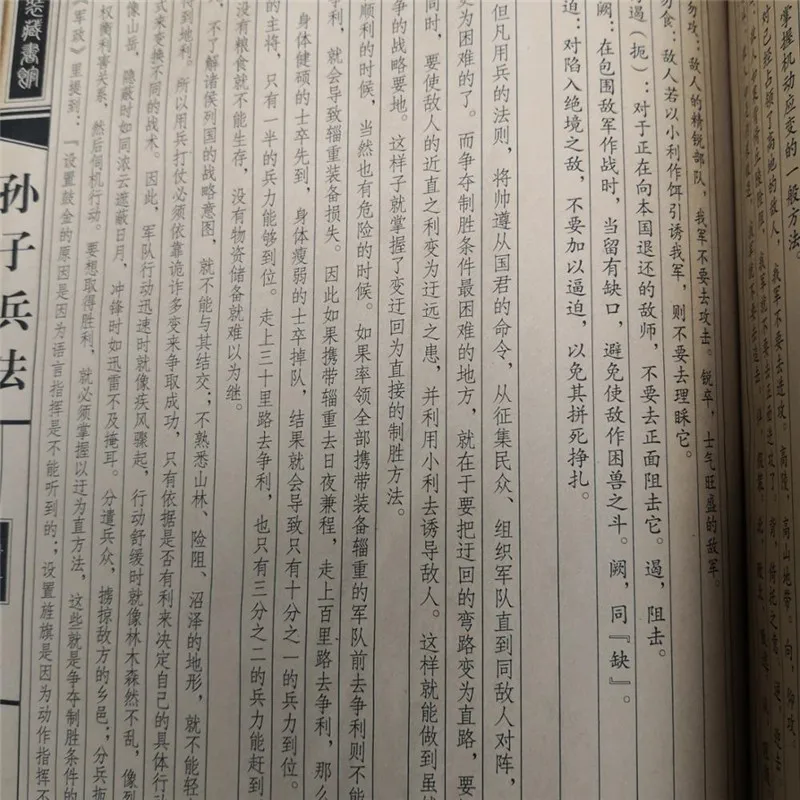 掌握机动应变的一般方法。
高陵:高山地带。向,仰攻。
对已经占领了高地的敌人,我军不要去进攻
勿攻:敌人的精锐部队,我军不要去攻击。锐卒,士气旺盛的敌军。
勿食:敌人若以小利作饵引诱我军,则不要去理睬它。
勿遏(扼):对于正在向本国退还的敌师,不要去正面阻击它。遏,阻击。
阙:在包围敌军作战时,当留有缺口,避免使敌作困兽之斗。阙,同『缺』。
迫:对陷入绝境之敌,不要加以逼迫,以免其拼死挣扎。
但凡用兵的法则,将帅遵从国君的命令,从征集民众、组织军队直到同敌人对阵,
变为困难的了。而争夺制胜条件最困难的地方,就在于要把迂回的弯路变为直路,要
同时,要使敌人的近直之利变为迂远之患,并利用小利去诱导敌人。这样就能做到虽
争的战略要地。这样子就掌握了变迂回为直接的制胜方法。
顺利的时候,当然也有危险的时候。如果率领全部携带装备辎重的军队前去争利则不能
争利,就会导致辎重装备损失。因此如果携带辎重去日夜兼程,走上百里路去争利,那么
身体健硕的士卒先到,身体瘦弱的士卒掉队,结果就会导致只有十分之一的兵力到位。
的主将,只有一半的兵力能够到位。走上三十里路去争利,也只有三分之二的兵力能赶到
没有粮食就不能生存,没有物资储备就难以为继。
不了解诸侯列国的战略意图,就不能与其结交;不熟悉山林、险阻、沼泽的地形,就不能轻
得到地利。所以用兵打仗必须依靠诡诈多变来争取成功,只有依据是否有利来决定自己的具体行动
式来变换不同的战术。因此,军队行动迅速时就像疾风骤起,行动舒缓时就像林木森然不乱,像烈
像山岳,隐蔽时如同浓云遮蔽日月,冲锋时如迅雷不及掩耳。分遣兵众,掳掠敌方的乡邑;分兵扼
权衡利害关系,然后伺机行动。要想取得胜利,就必须掌握以迂为直方法,这些就是争夺制胜条件的
《军政》里提到:『设置鼓金的原因是因为语言指挥是不能听到的;设置旌旗是因为动作指挥不
藏书馆
孙子兵法